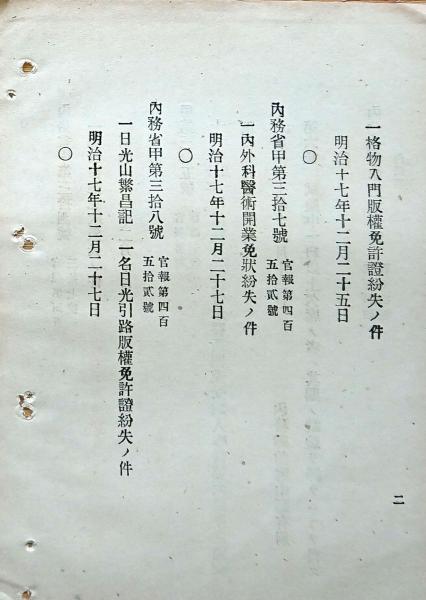 一格物入門版權免許證紛失ノ件
明治十七年十二月二十五日
〇
內務省甲第三拾七號 官報第四百五拾貳號
一內外科醫術開業免狀紛失ノ件
明治十七年十二月二十七日
〇
內務省甲第三拾八號 官報第四百五拾貳號
一日光山繁昌記一名日光引路版權免許證紛失ノ件
明治十七年十二月二十七日
〇
二